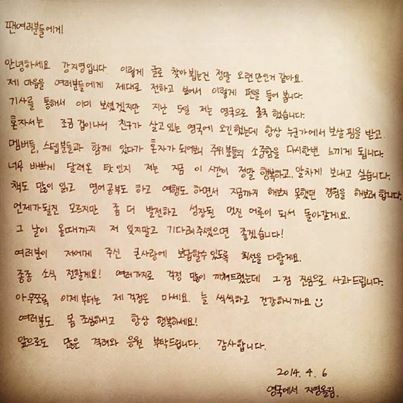 팬여러분들에게
안녕하세요 강지영입니다. 이렇게 글로 찾아뵙는건 정말 오랜만인거 같아요.
제 마음을 여러분들에게 제대로 전하고 싶어서 이렇게 펜을 들어 봅니다.
기사를 통해서 이미 보셨겠지만 지난 5일 저는 영국으로 출국 했습니다.
혼자서는 조금 겁이나서 친구가 살고있는 영국에 오긴했는데 항상 누군가에서 보살핌을 받고
멤버들, 스텝분들과 함께 있다가 혼자가 되어보니 주위분들의 소중함을 다시한번 느끼게 됩니다.
너무 바쁘게 달려온 탓인지 저는 지금 이 시간이 정말 행복하고, 알차게 보내고 싶습니다.
책도 많이 읽고 영어공부도 하고 여행도 하면서 지금까지 해보지 못했던 경험을 해보려 합니다.
언제가될진 모르지만 좀 더 발전하고 성장된 멋진 어른이 되서 돌아갈게요.
그 날이 올때까지 저 잊지말고 기다려주셨으면 좋겠습니다!
여러분이 저에게 주신 큰사랑에 보답할수 있도록 최선을 다할게요.
종종 소식 전할게요! 여러가지로 걱정 많이 끼쳐드렸는데 그점 진심으로 사과드립니다.
아무쪼록 이제부터는 제 걱정은 마세요. 늘 씩씩하고 건강하니까요 ☺
여러분도 몸 조심하시고 항상 행복하세요!
앞으로도 많은 격려와 응원 부탁드립니다. 감사합니다.
2014. 4. 6
영국에서 지영올림.